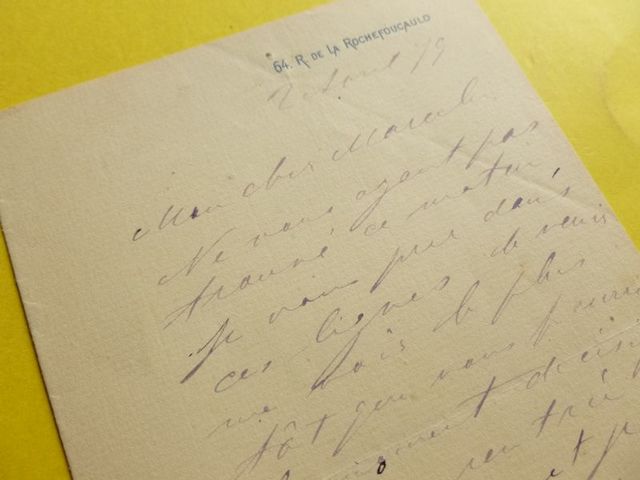 64. R. DE LA ROCHEFOUCAULD
20 août 79
Mon cher Marcelin
Ne vous ayant pas
trouvé ce matin,
je vous prie dans
ces lignes de venir
me voir le plus
tôt que vous pourr
moment décisi
rentré